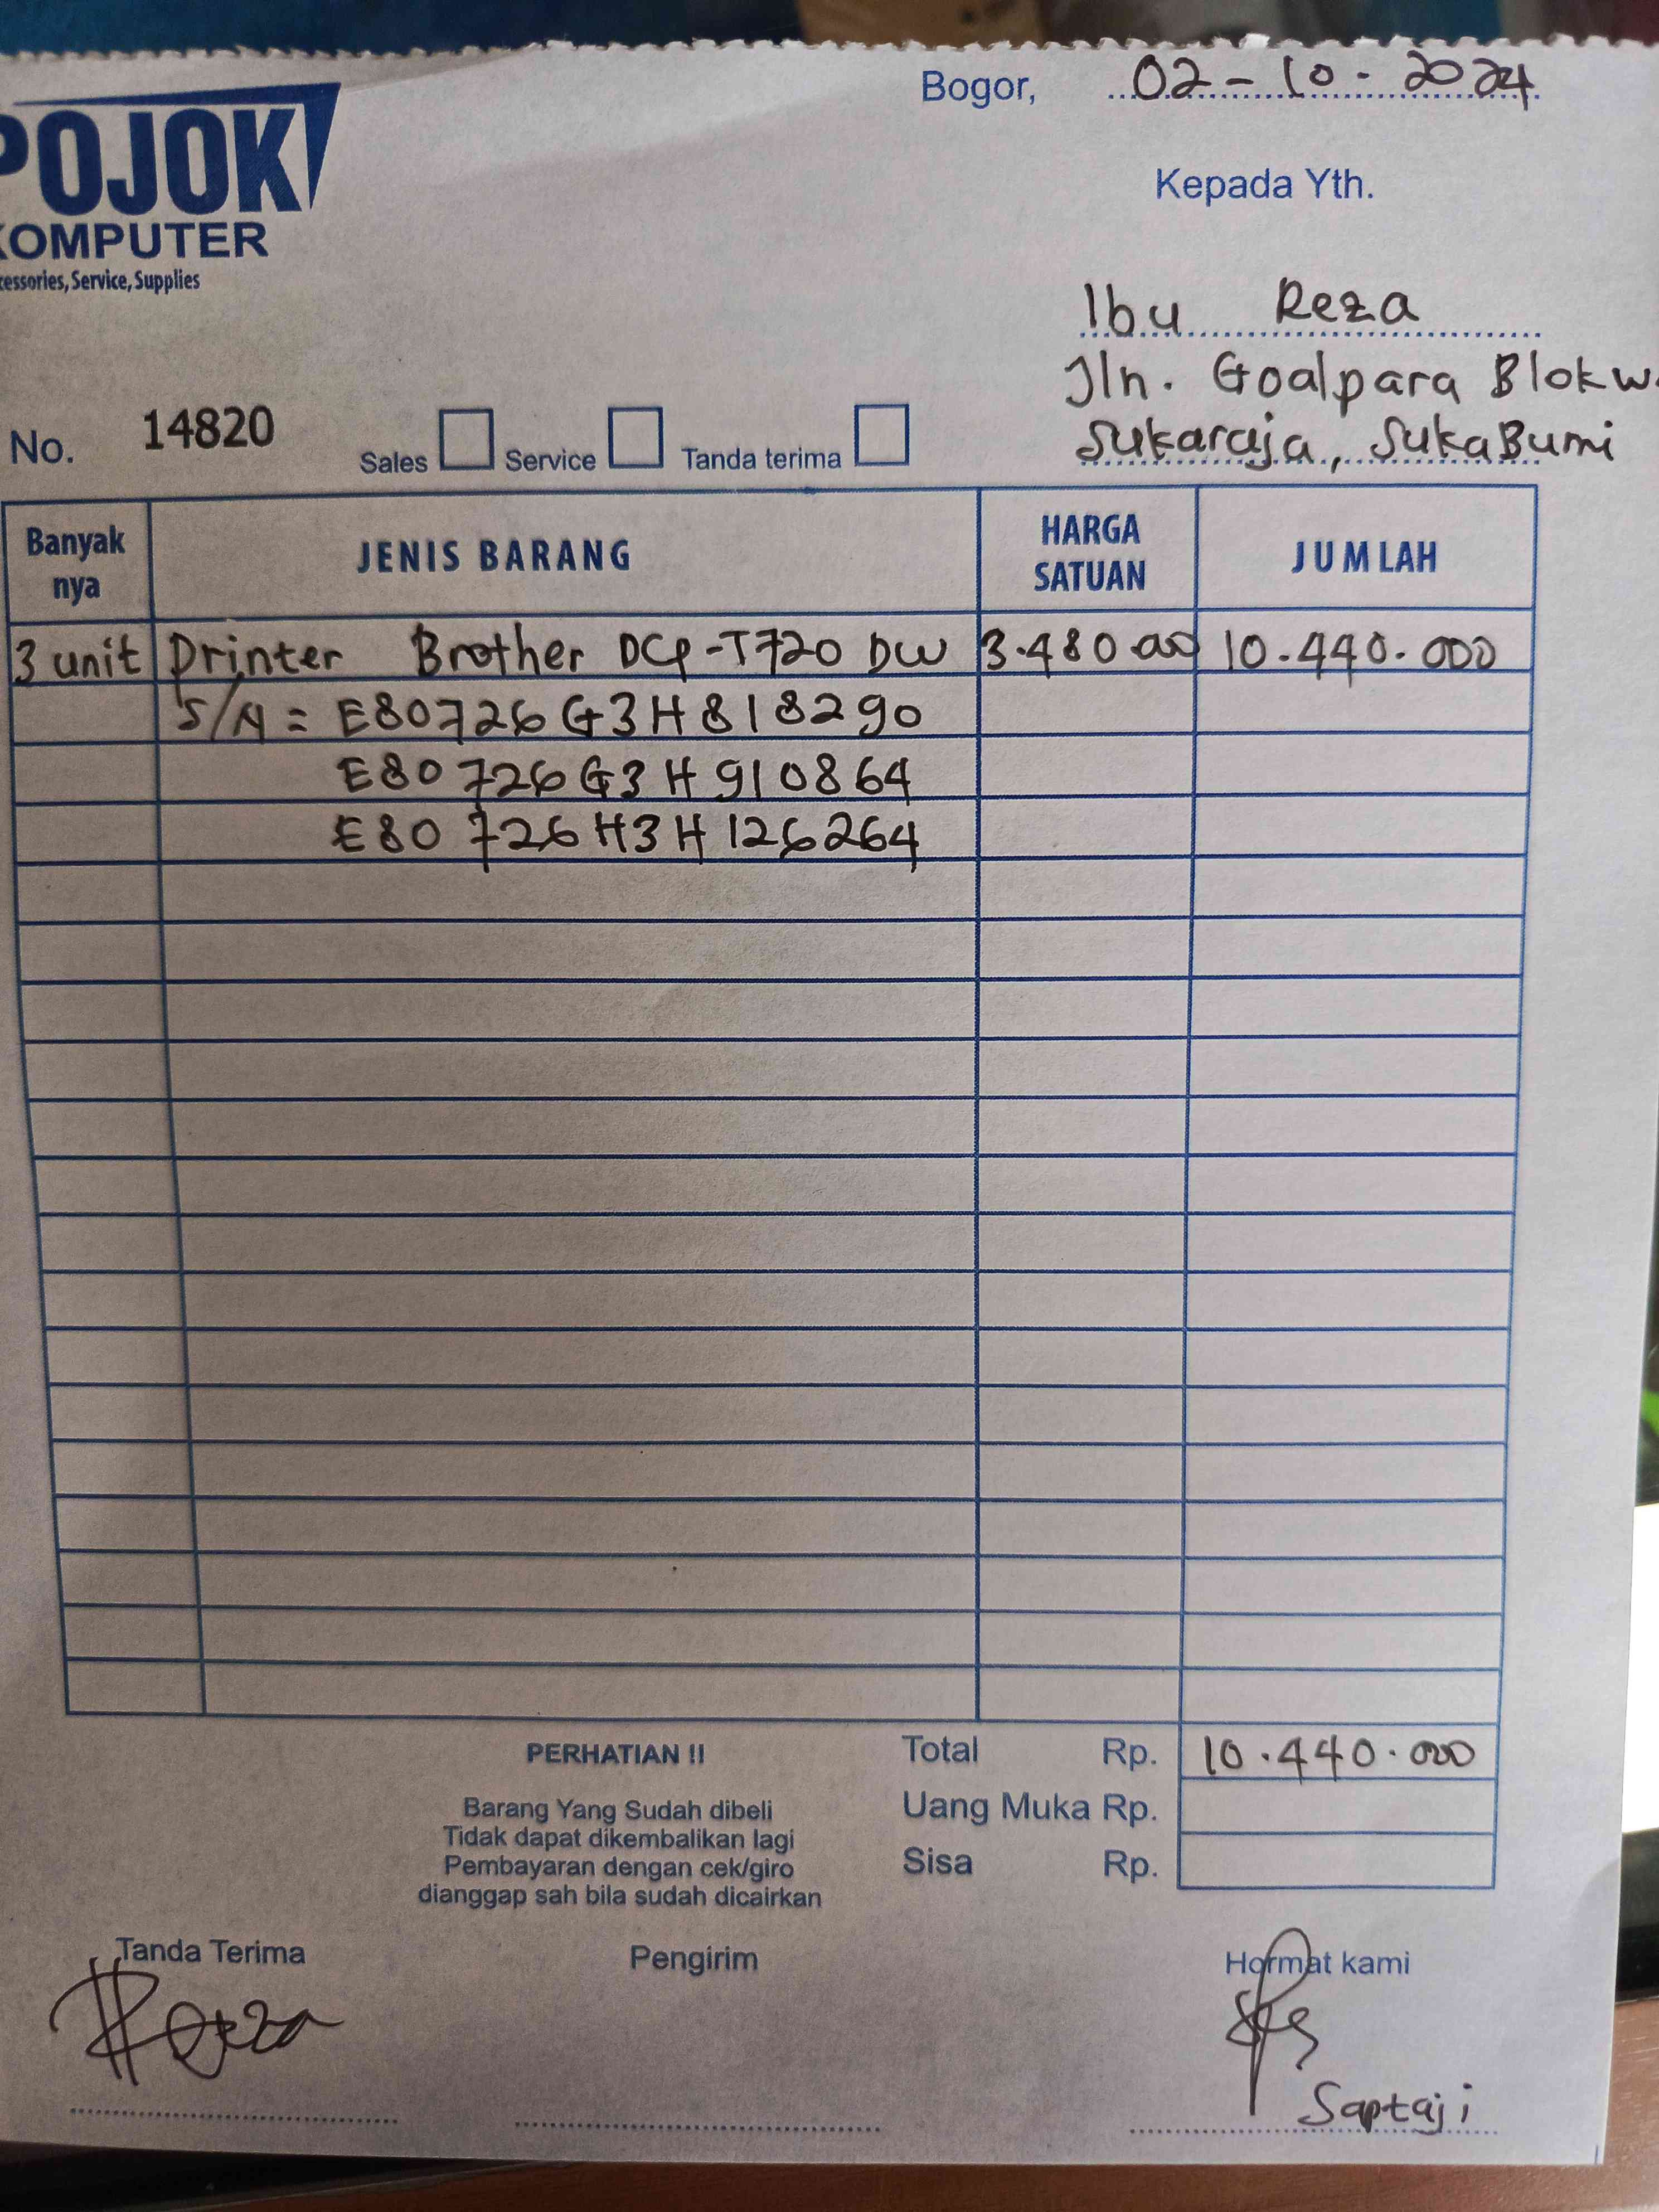 Bogor, 02-10-2024
POJOK
KOMPUTER
cessories, Service, Supplies
Kepada Yth.
Ibu Reza
Jln. Goalpara Blok w
Sukaraja, SukaBumi
No. 14820 Sales Service Tanda terima
Banyak nya JENIS BARANG HARGA SATUAN JUMLAH
3 unit Printer Brother DCP-T720 DW 3.480.000 10.440.000
S/N = E80726G3H818290
E80726G3H910864
E80726H3H126264
PERHATIAN !!
Barang Yang Sudah dibeli
Tidak dapat dikembalikan lagi
Pembayaran dengan cek/giro
dianggap sah bila sudah dicairkan
Total Rp. 10.440.000
Uang Muka Rp.
Sisa Rp.
Tanda Terima Pengirim Hormat kami
Reza
Saptaji